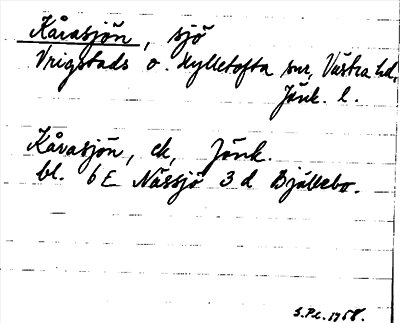 Kårasjön, sjö
Vrigstads o. Hylletofta snr, Västra hd,
Jönk. l.
Kårasjön, ek, Jönk.
bl. 6 E Nässjö 3 d Bjällebo.
S.Pl. 1958.